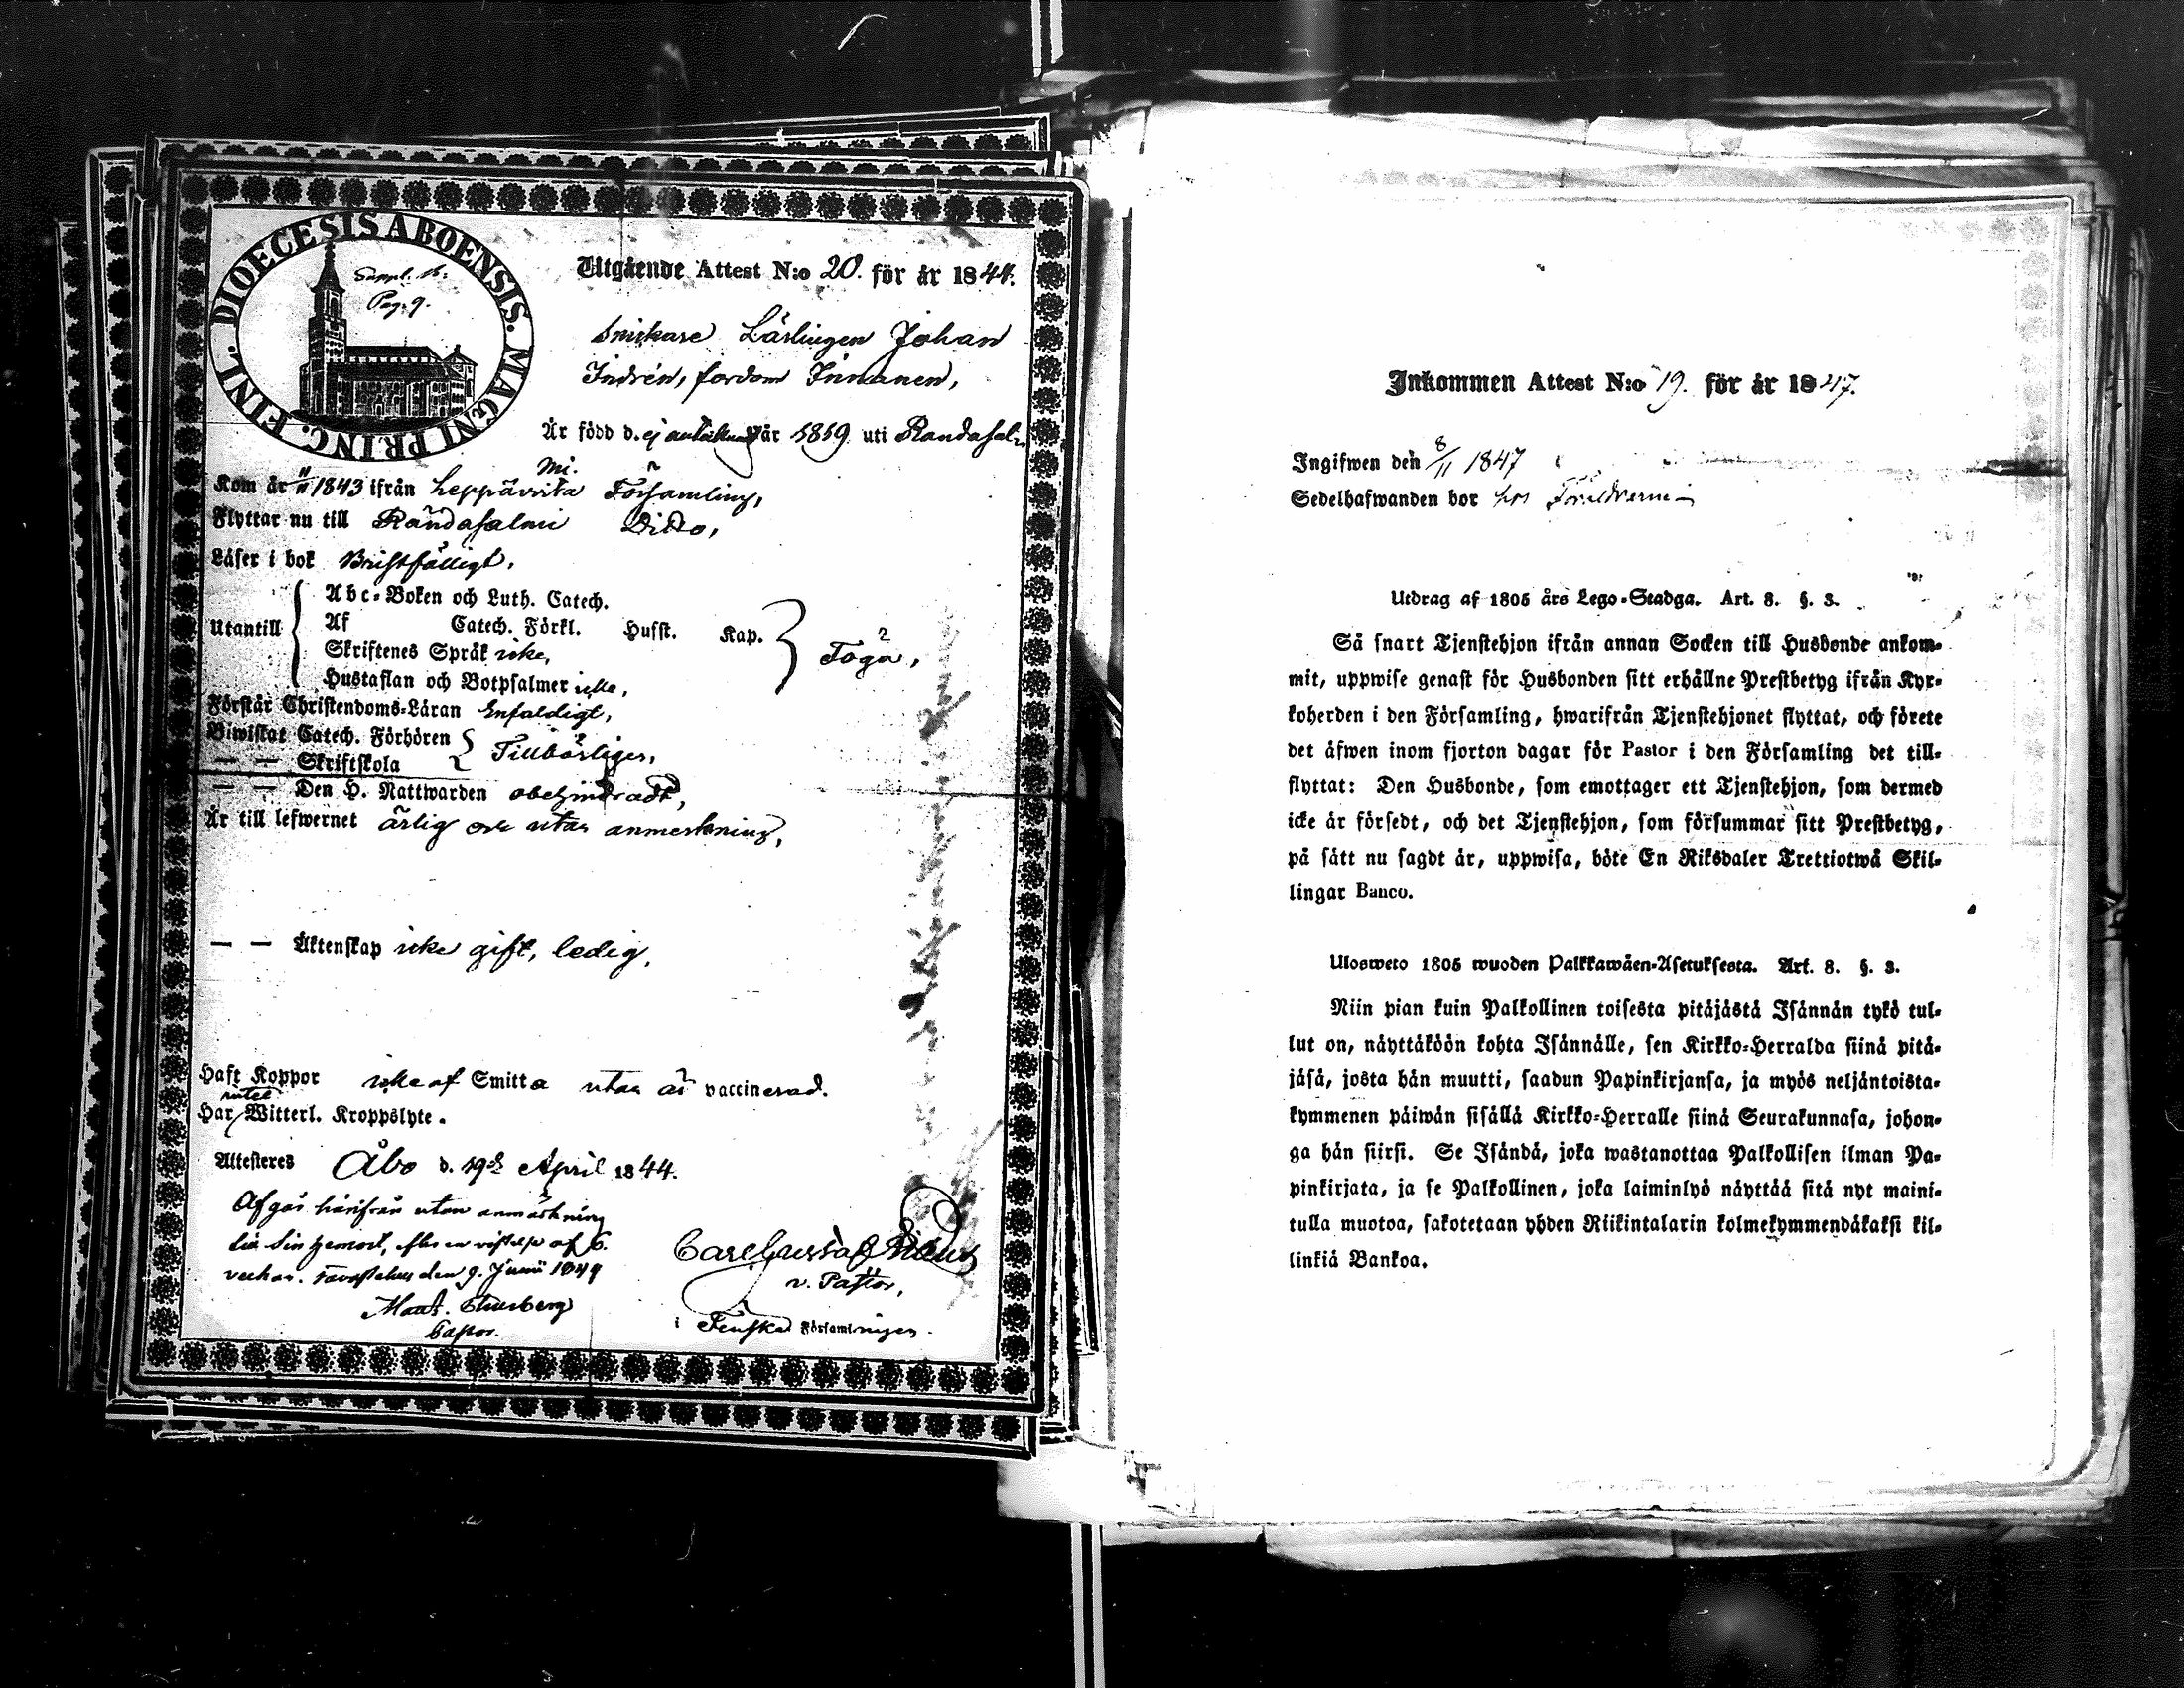 DIOECESIS ABOENSIS. MAGNI PRINC. FINL.
Suppl. B.
Pag. 9.
Utgående Attest N:o 20. för år 1844.
Snickare Lärlingen Johan
Indrén, fordom Innanen,
Är född d. ej antecknadt år 1819 uti Randasalmi.
Kom år 1843 ifrån Leppävirta Församling,
Flyttar nu till Randasalmi Ditto,
Läser i bok Bristfälligt,
Utantill
Abc-Boken och Luth. Catech.
Af Catech. Förkl. Husst. Kap.
Skriftenes Språk icke,
Hustaflan och Botpsalmer icke,
Föga,
Förstår Christendoms-Läran Enfaldigt,
Biwistat Catech. Förhören
— — Skriftskola
Tillbörligen,
— — Den H. Nattwarden obehindradt,
Är till lefwernet ärlig och utan anmerkning,
— — Äktenskap icke gift, ledig,
Haft Koppor icke af Smitta utan är vaccinerad.
Har intet Witterl. Kroppslyte.
Attesteres Åbo d. 19de April 1844.
Afgår härifrån utan anmärkning
till sin hemort, efter en vistelse af 6.
veckor. Tavastehus den 9. Junii 1844
Pastor.
Carl Gustaf
v. Pastor,
i Finska Församlningen.
Inkommen Attest N:o 19. för år 1847.
Ingifwen den 8/11 1847
Sedelhafwanden bor hos Föräldrarne
Utdrag af 1805 års Lego-Stadga. Art. 8. §. 3.
Så snart Tjenstehjon ifrån annan Socken till Husbonde ankom-
mit, uppwise genast för Husbonden sitt erhållne Prestbetyg ifrån Kyr-
koherden i den Församling, hwarifrån Tjenstehjonet flyttat, och förete
det äfwen inom fjorton dagar för Pastor i den Församling det till-
flyttat: Den Husbonde, som emottager ett Tjenstehjon, som dermed
icke är försedt, och det Tjenstehjon, som försummar sitt Prestbetyg,
på sätt nu sagdt är, uppwisa, böte En Riksdaler Trettiotwå Skil-
lingar Banco.
Ulosweto 1805 wuoden Palkkawäen-Asetuksesta. Art. 8. §. 3.
Niin pian kuin Palkollinen toisesta pitäjästä Isännän tykö tul-
lut on, näyttäköön kohta Isännälle, sen Kirkko-Herralda siinä pitä-
jäsä, josta hän muutti, saadun Papinkirjansa, ja myös neljäntoista-
kymmenen päiwän sisällä Kirkko-Herralle siinä Seurakunnasa, johon-
ga hän siirsi. Se Isändä, joka wastanottaa Palkollisen ilman Pa-
pinkirjata, ja se Palkollinen, joka laiminlyö näyttää sitä nyt maini-
tulla muotoa, sakotetaan yhden Riikintalarin kolmekymmendäkaksi kil-
linkiä Bankoa.